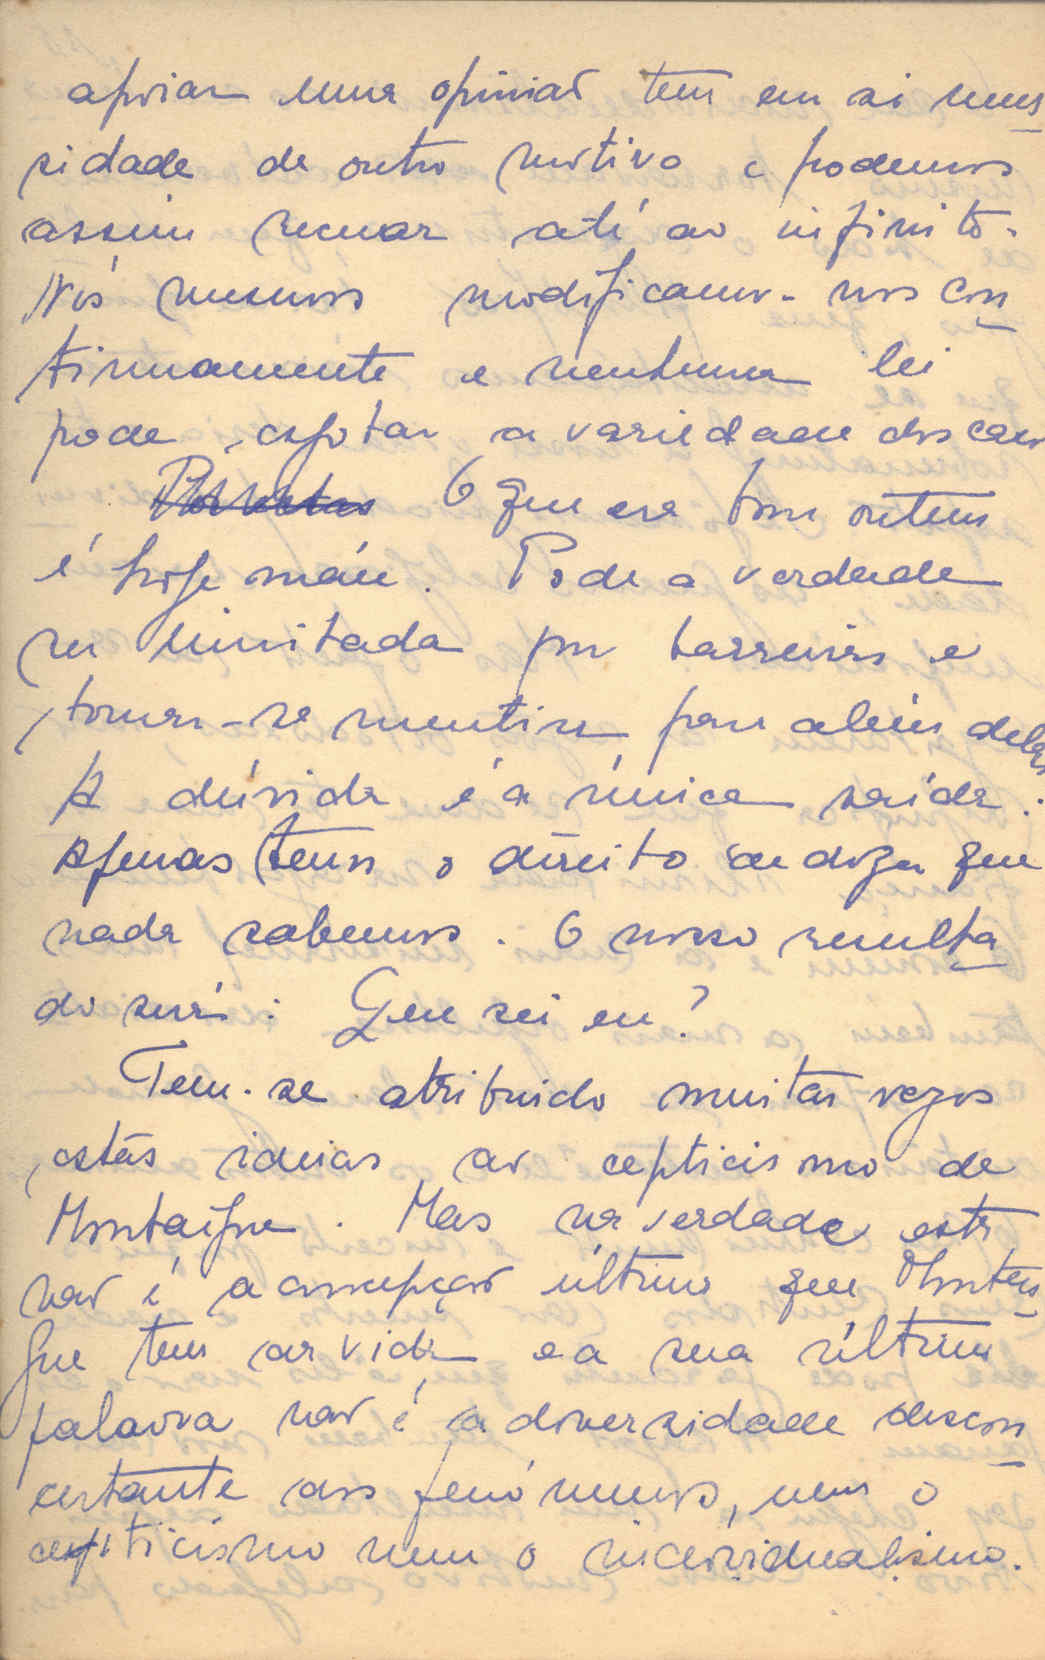 apoiar uma opinião tem em si neces
sidade de outro motivo e podemos
assim recuar até ao infinito.
Nós mesmos modificamo-nos con
tinuamente e nenhuma lei
pode esgotar a variedade dos casos
O que era bom ontem
é hoje máu. Pode a verdade
ser limitada por barreiras e
tornar-se mentira para além delas
A dúvida é a única saída.
Apenas temos o direito de dizer que
nada sabemos. O nosso resulta
do será: Que sei eu?
Tem-se atribuido muitas vezes
estas ideias ao cepticismo de
Montaigne. Mas na verdade esta
não é a concepção última que Montai
gne tem da vida e a sua última
palavra não é a diversidade descon
certante dos fenómenos, nem o
cepticismo nem o individualismo.